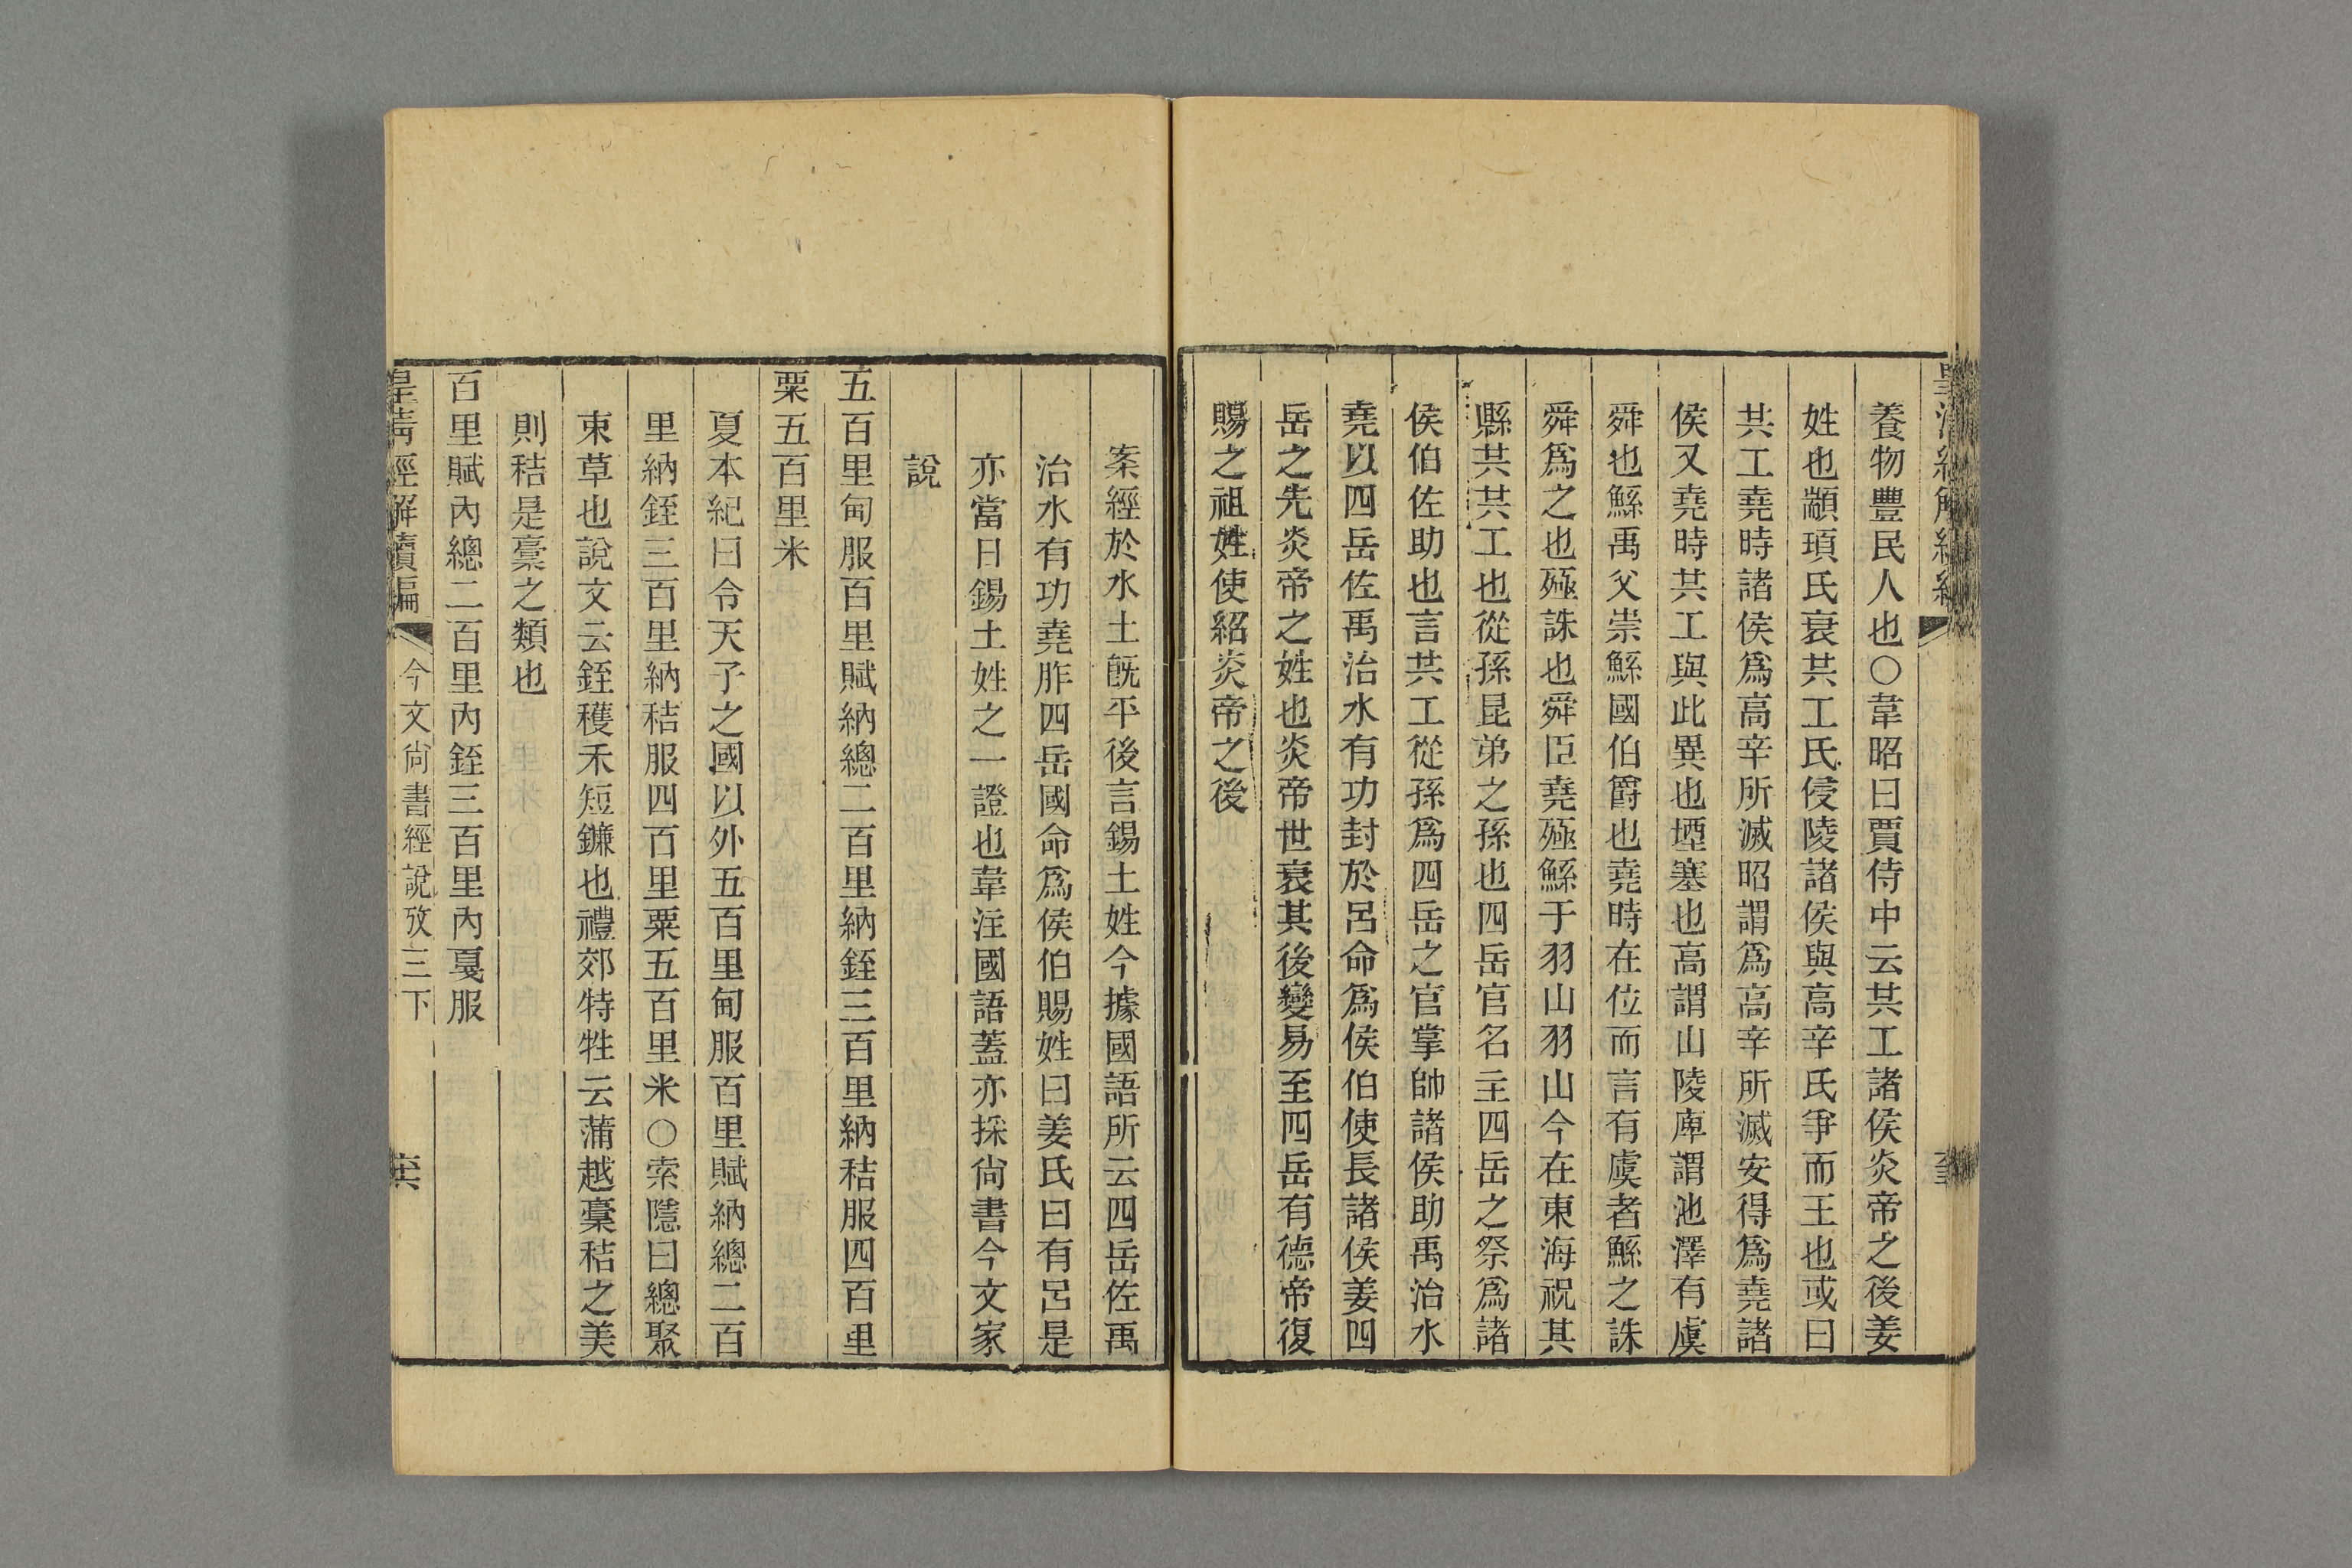 養物豐民人也○韋昭曰賈侍中云共工諸侯炎帝之後姜
姓也顓頊氏衰共工氏侵陵諸侯與高辛氏爭而王也或曰
共工堯時諸侯爲高辛所滅昭謂爲高辛所滅安得爲堯諸
侯又堯時共工與此異也堙塞也高謂山陵庳謂池澤有虞
舜也鯀禹父崇鯀國伯爵也堯時在位而言有虞者鯀之誅
舜爲之也殛誅也舜臣堯殛鯀于羽山羽山今在東海祝其
縣共共工也從孫昆弟之孫也四岳官名主四岳之祭爲諸
侯伯佐助也言共工從孫爲四岳之官掌帥諸侯助禹治水
堯以四岳佐禹治水有功封於呂命爲侯伯使長諸侯姜四
岳之先炎帝之姓也炎帝世衰其後變易至四岳有德帝復
賜之祖姓使紹炎帝之後
案經於水土旣平後言錫土姓今據國語所云四岳佐禹
治水有功堯胙四岳國命爲侯伯賜姓曰姜氏曰有呂是
亦當日錫土姓之一證也韋注國語蓋亦採尙書今文家
說
五百里甸服百里賦納總二百里納銍三百里納秸服四百里
粟五百里米
夏本紀曰令天子之國以外五百里甸服百里賦納總二百
里納銍三百里納秸服四百里粟五百里米○索隱曰總聚
束草也說文云銍穫禾短鐮也禮郊特牲云蒲越藁秸之美
則秸是藁之類也
百里賦內總二百里內銍三百里內戛服
皇清經解續編
今文尙書經說攷三下